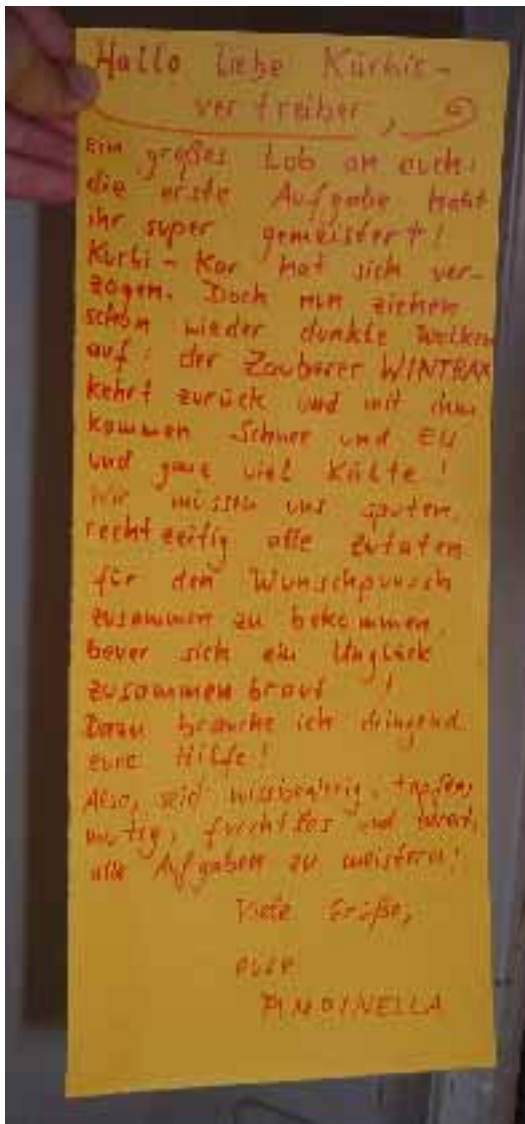 Hallo liebe Kürbis-
vertreiber,
Ein großes Lob an euch:
die erste Aufgabe habt
ihr super gemeistert!
Kürbi-Kor hat sich ver-
zogen. Doch nun ziehen
schon wieder dunkle Wolken
auf: der Zauberer WINTRAX
kehrt zurück und mit ihm
kommen Schnee und Eis
und ganz viel Kälte!
Wir müssen uns sputen,
rechtzeitig alle Zutaten
für den Wunschpunsch
zusammen zu bekommen,
bevor sich ein Unglück
zusammen braut!
Dazu brauche ich dringend
eure Hilfe!
Also, seid wissbegierig, tapfer,
mutig, furchtlos und bereit,
alle Aufgaben zu meistern!
Viele Grüße,
eure